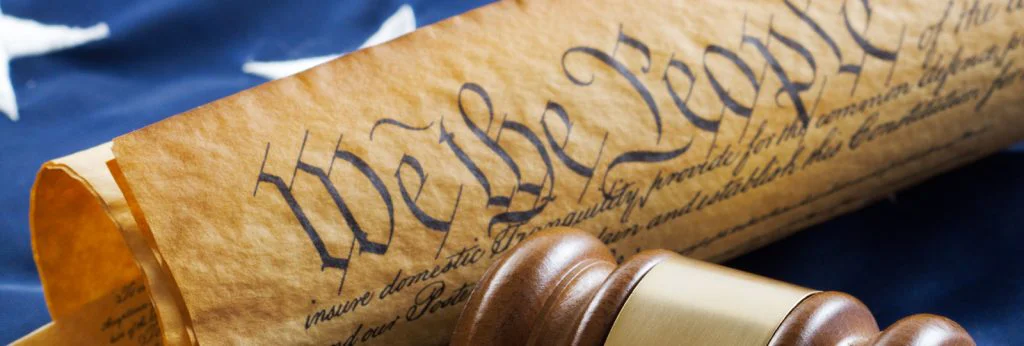 We the People of the
insure domestic Tranquility, provide for the common defence,
and our Poste and establish this Constitution for